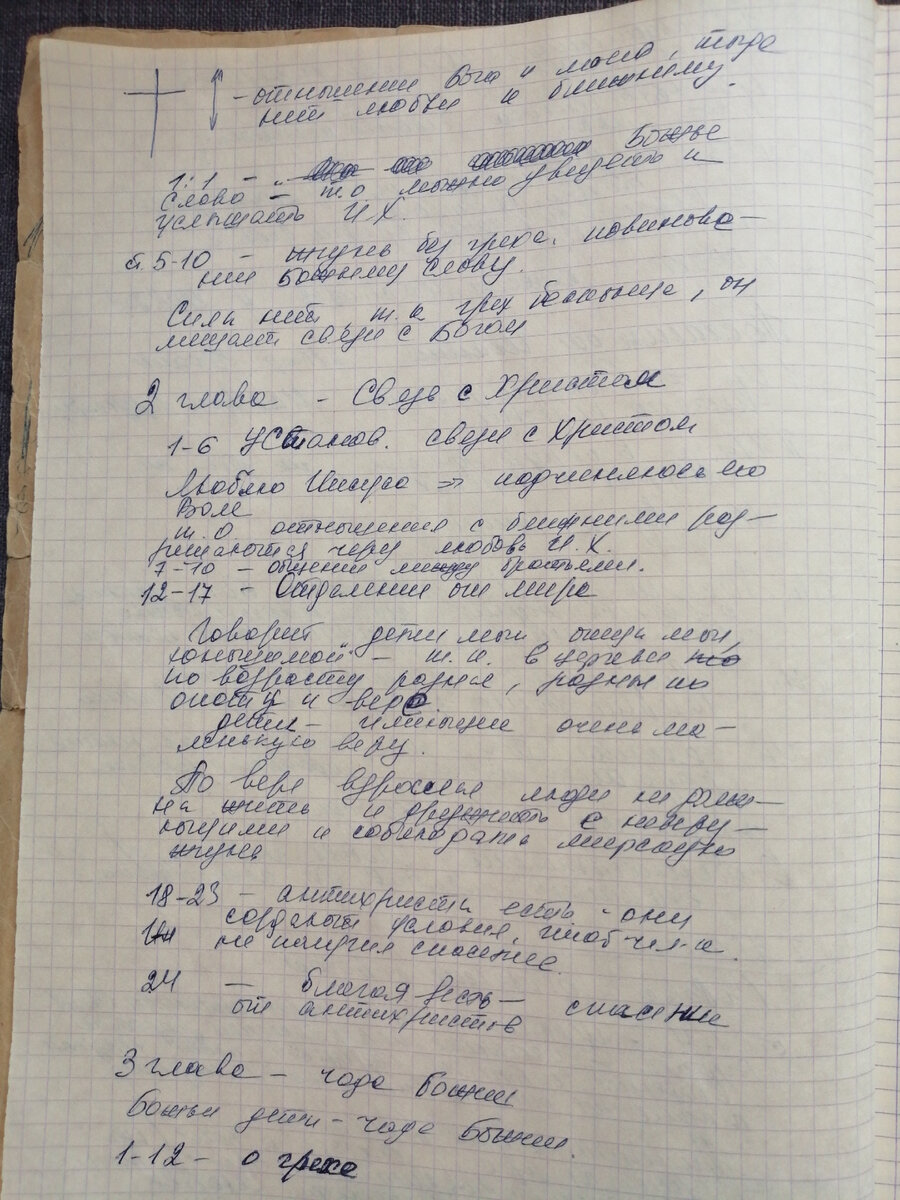 - отношении Бога и мое, тогда
нит любви к ближнему.
1:1 - Божье
Слово - т.о. можно увидеть и
услышать И.Х.
ст. 5-10 - жизнь без греха, повинове-
ние Божьему Слову.
Силы нет, т.к. грех
лишает связи с Богом
2 глава - Связь с Христом
1-6 Установ. связи с Христом
Люблю Иисуса => подчиняюсь его
Воле
т.о отношения с ближними раз-
решаются через любовь И.Х.
7-10 - общение между братьями.
12-17 - Отделение от мира
Говорит дети мои, отцы мои,
юноши мои - т.к. в церкви
по возрасту разные, разные по
опыту и вере.
дети - имеющие очень ма-
ленькую веру.
По вере взрослые люди не долж-
на жить и дружить с неверу-
ющими и соблюдать мирскую
жизнь
18-23 - антихристы есть - они
создают условия, чтоб чел-к
не получил спасение.
24 - благая весть - спасение
от антихристов
3 глава - чада Божии
Божьи дети - чада Божии.
1-12 - о грехе